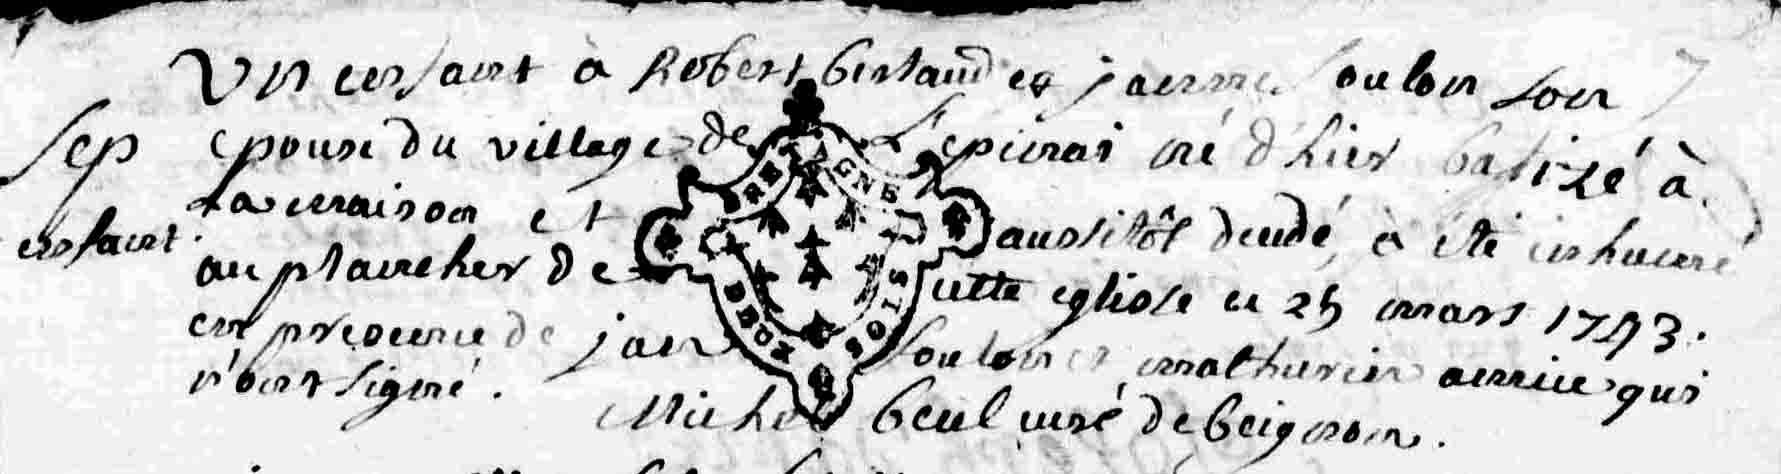 Un enfant à Robert berland et janne soulon son
Sep epouse du village de L'epinai né d'hier batizé à
enfant La maison et aussitôt decedé, a été inhumé
au plancher de cette eglise ce 25 mars 1743.
en presence de jan soulon et mathurin amice qui
n'ont signé.
Michel beul curé de beignon.
BRETAGNE
DEUX SOLS